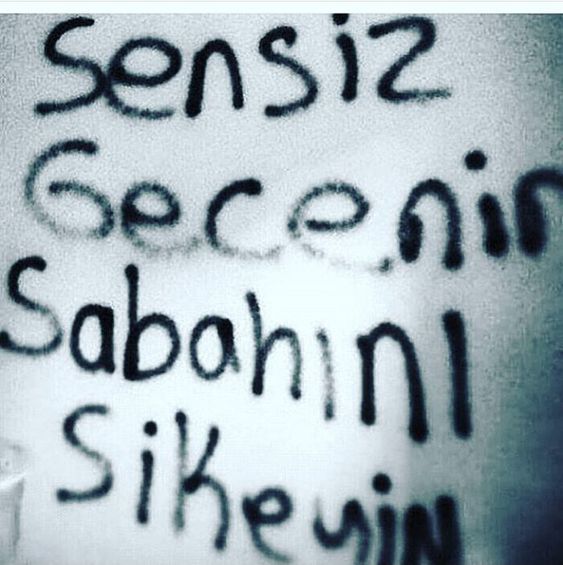 Sensiz
Gecenin
Sabahını
Sikeyin